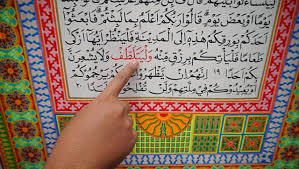 قَالُوا لَبِثْنَا
يَوْمًا أَوْ بَعْضَ يَوْمٍ قَالُوا رَبُّكُمْ أَعْلَمُ بِمَا لَبِثْتُمْ فَابْعَثُوا
أَحَدَكُمْ بِوَرِقِكُمْ هَٰذِهِ إِلَى الْمَدِينَةِ فَلْيَنْظُرْ أَيُّهَا أَزْكَىٰ
طَعَامًا فَلْيَأْتِكُمْ بِرِزْقٍ مِنْهُ وَلْيَتَلَطَّفْ وَلَا يُشْعِرَنَّ
بِكُمْ أَحَدًا ١٩ إِنَّهُمْ إِنْ يَظْهَرُوا يَرْجُمُوكُمْ
أَوْ يُعِيدُوكُمْ فِي مِلَّتِهِمْ وَلَنْ